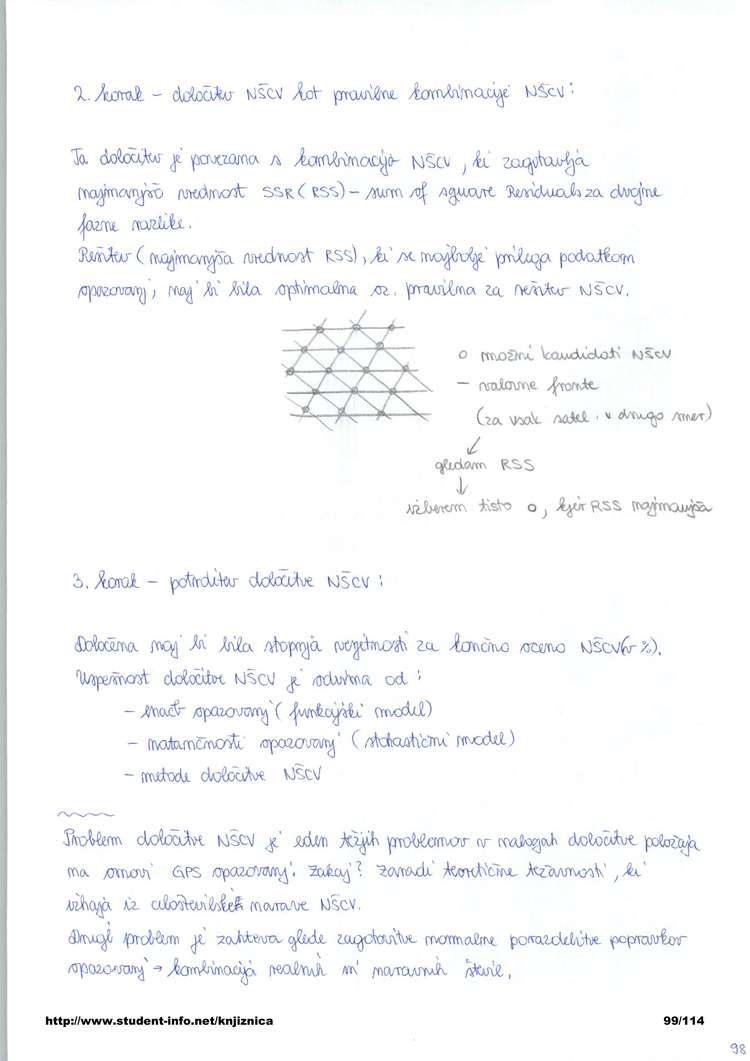 2. korak – določitev NŠCV kot pravilne kombinacije NŠCV :
Ta določitev je povezana s kombinacijo NŠCV, ki zagotavlja
najmanjšo vrednost SSR (RSS) – sum of square Residuals za dvojne
fazne razlike.
Rešitev (najmanjša vrednost RSS), ki se najbolje prilega podatkom
opazovanj, naj bi bila optimalna oz. pravilna za rešitev NŠCV.
o možni kandidati NŠCV
– valovne fronte
(za vsak satel. v drugo smer)
gledam RSS
izberem tisto o, kjer RSS najmanjša
3. korak – potrditev določitve NŠCV :
Določena naj bi bila stopnja verjetnosti za končno oceno NŠCV (v %).
Uspešnost določitve NŠCV je odvisna od :
– enačb opazovanj (funkcijski model)
– natančnosti opazovanj (stohastični model)
– metode določitve NŠCV
Problem določitve NŠCV je eden težjih problemov v nalogah določitve položaja
na osnovi GPS opazovanj. Zakaj? Zaradi teoretične težavnosti, ki
izhaja iz celoštevilske narave NŠCV.
Drugi problem je zahteva glede zagotovitve normalne porazdelitve popravkov
opazovanj → kombinacija realnih in naravnih števil.
http://www.student-info.net/knjiznica
99/114
98